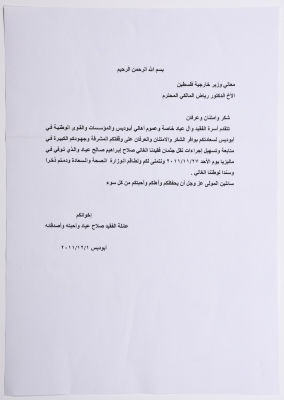 بسم الله الرحمن الرحيم
معالي وزير خارجية فلسطين
الأخ الدكتور رياض المالكي المحترم
شكر وامتنان وعرفان
تتقدم أسرة الفقيد وآل عياد خاصة وعموم أهالي أبوديس والمؤسسات والقوى الوطنية في
أبوديس لسعادتكم بوافر الشكر والامتنان والعرفان على وقفتكم المشرفة وجهودكم الكبيرة في
متابعة وتسهيل إجراءات نقل جثمان فقيدنا الغالي صلاح إبراهيم صالح عياد والذي توفي في
ماليزيا يوم الأحد ٢٠١١/١١/٢٧ ونتمنى لكم ولطاقم الوزارة الصحة والسعادة ودمتم ذخرا
وسندا لوطننا الغالي .
سائلين المولى عز وجل أن يحفظكم وأهلكم وأحبتكم من كل سوء
إخوانكم
عائلة الفقيد صلاح عياد وأحبته وأصدقائه
أبوديس ٢٠١١/١٢/١